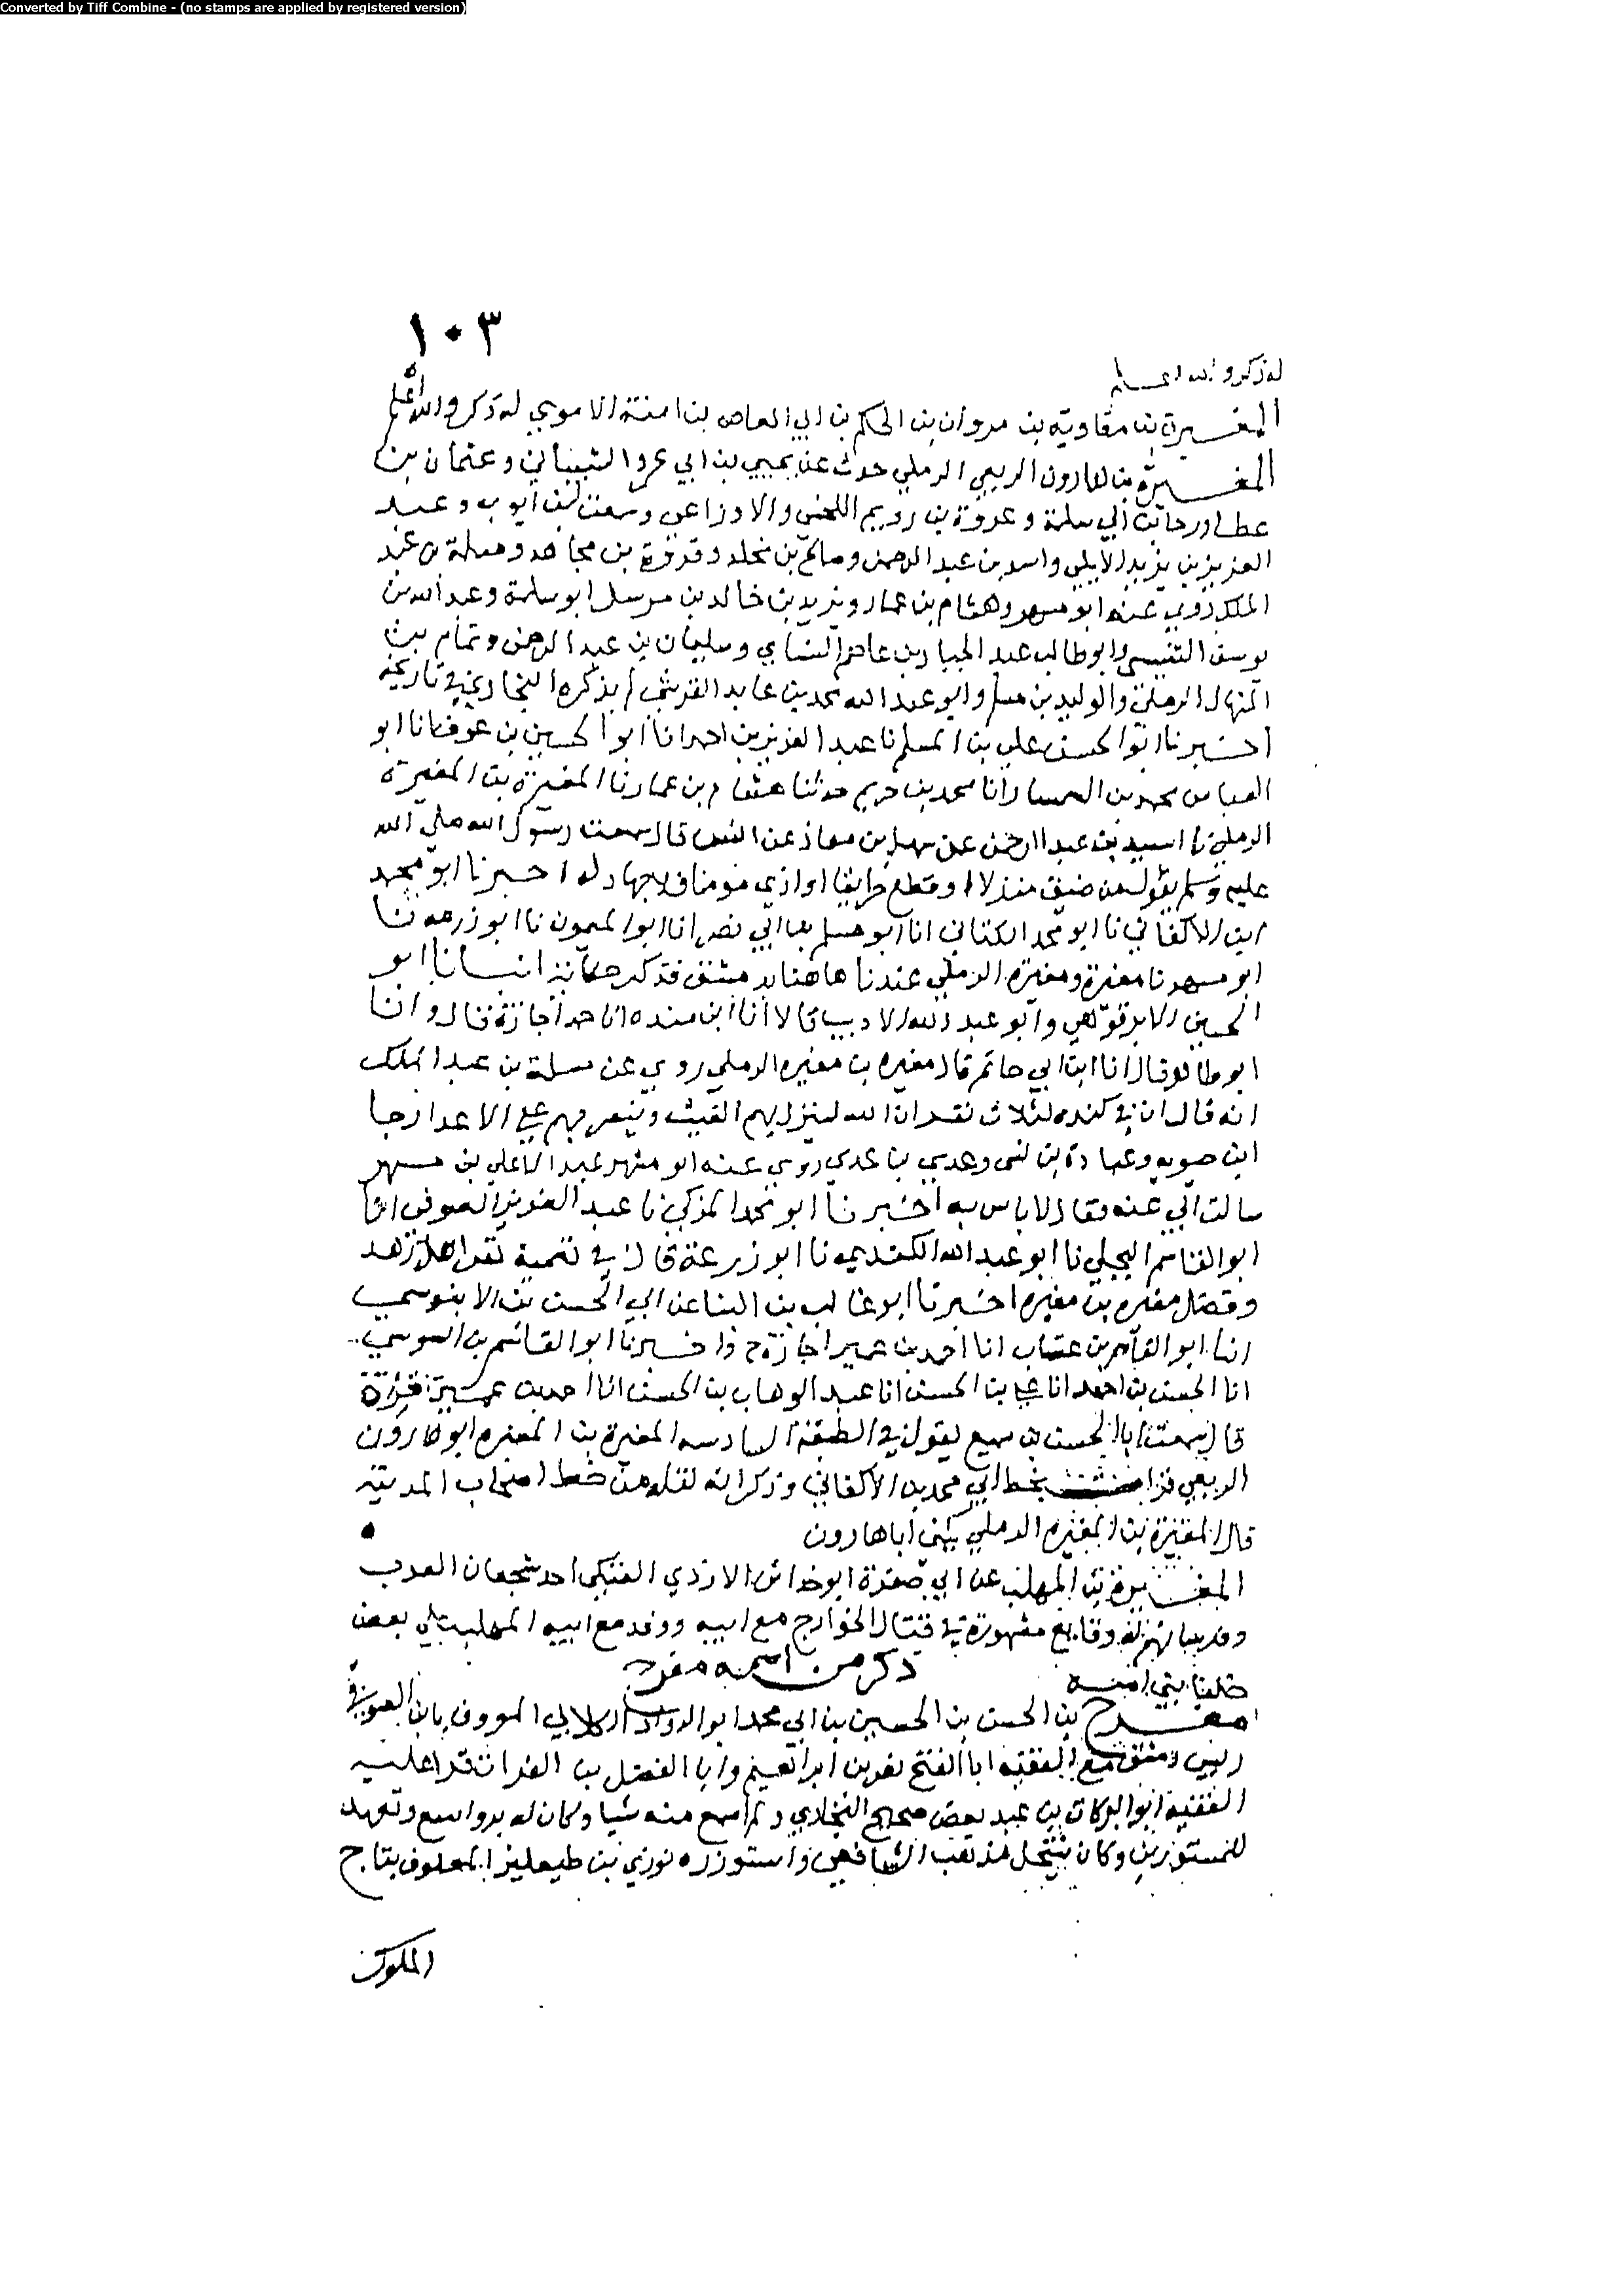 Converted by Tiff Combine - (no stamps are applied by registered version)
١٠٣
له ذكر والله اعلم
المغيرة بن معاوية بن مروان بن الحكم بن ابي العاص بن امية الاموي له ذكر والله اعلم
المغيرة بن هارون الربعي الرملي حدث عن يحيى بن ابي عمرو الشيباني وعثمان بن
عطا ورجا بن ابي سلمة وعروة بن رويم اللخمي والاوزاعي وسعيد بن ايوب وعبد
العزيز بن يزيد الايلي واسد بن عبد الرحمن وصالح بن مخلد وفروة بن مجاهد ومسلمة بن عبد
الملك روى عنه ابو مسهر وهشام بن عمار ويزيد بن خالد بن مرسل ابو سلمة وعبد الله بن
يوسف التنيسي وابو طالب عبد الجبار بن عاصم النساي وسليمان بن عبد الرحمن وتمام بن
المنهال الرملي والوليد بن مسلم وابو عبد الله محمد بن عايد القرشي لم يذكره البخاري في تاريخه
اخبرنا ابو الحسن علي بن المسلم نا عبد العزيز بن احمد انا ابو الحسين بن عوف انا ابو
العباس محمد بن السمسار انا محمد بن خريم حدثنا هشام بن عمار نا المغيرة بن المغيرة
الرملي نا اسيد بن عبد الرحمن عن سهل بن معاذ عن انس قال سمعت رسول الله صلى الله
عليه وسلم يقول من ضيق منزلا او قطع طريقا او اذى مومنا فلا جهاد له اخبرنا ابو محمد
ابن الاكفاني نا ابو محمد الكتاني انا ابو مسلم بن ابي نصر انا ابو الميمون نا ابو زرعه نا
ابو مسهر نا مغيرة ومغيرة الرملي عندنا هاهنا بدمشق فذكر حكاية انبانا ابو
الحسين الابرقوهي وابو عبد الله الاديب قالا انا ابن منده انا حمد اجازة قال وانا
ابو طاهر قال انا ابن ابي حاتم قال مغيره بن مغيره الرملي روى عن مسلمة بن عبد الملك
انه قال ان في كنده لثلاث نفر ان الله لينزل بهم الغيث وينصر بهم على الاعدا رجا
ابن حيويه وعبادة بن نسى وعدي بن عدي روى عنه ابو مسهر عبد الاعلى بن مسهر
سالت ابي عنه فقال لا باس به اخبرنا ابو محمد المزكي نا عبد العزيز الصوفي انا
ابو القاسم البجلي نا ابو عبد الله الكندي نا ابو زرعة قال في تسمية نفر اهل زهد
وفضل مغيره بن مغيره اخبرنا ابو غالب بن البنا عن ابي الحسن بن الابنوسي
انا ابو القاسم بن عتاب انا احمد بن عمير اجازة ح واخبرنا ابو القاسم بن السوسي
انا الحسن بن احمد انا علي بن الحسن انا عبد الوهاب بن الحسن انا احمد بن عمير قراة
قال سمعت ابا الحسن بن سميع يقول في الطبقة السادسه المغيرة بن المغيره ابو هارون
الربعي قرات بخط ابي محمد بن الاكفاني وذكر انه نقله من خط اصحاب المدينة
قال المغيرة بن المغيره الرملي يكنى ابا هارون
المغيرة بن المهلب عن ابي صفرة ابو خداش الازدي العتكي احد شجعان العرب
وفرسانهم له وقايع مشهورة في قتال الخوارج مع ابيه ووفد مع ابيه المهلب على بعض
خلفا بني امية
ذكر من اسمه مفرح
مفرح بن الحسن بن الحسين بن ابي محمد ابو الذواد الكلابي المعروف بابن الصوفي
رييس دمشق سمع الفقيه ابا الفتح نصر بن ابراهيم وابا الفضل بن الفرات قرا عليه
الفقيه ابو البركات بن عبد بعض صحيح البخاري ولم اسمع منه شيا وكان له بر واسع وتعهد
للمستورين وكان ينتحل مذهب الشافعي واستوزره نوري بن طيعليز المعلوف بتاج
الملوك